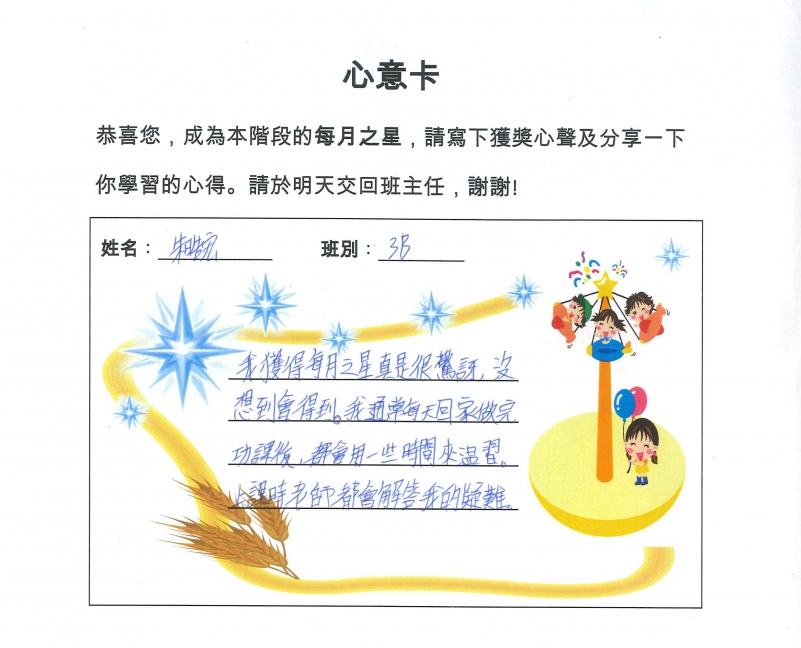 心意卡
恭喜您，成為本階段的每月之星，請寫下獲獎心聲及分享一下
你學習的心得。請於明天交回班主任，謝謝!
姓名： 朱皓宏 班別： 3B
我獲得每月之星真是很驚訝，沒
想到會得到。我通常每天回家做完
功課後，都會用一些時間來温習。
上課時老師都會解答我的疑難。